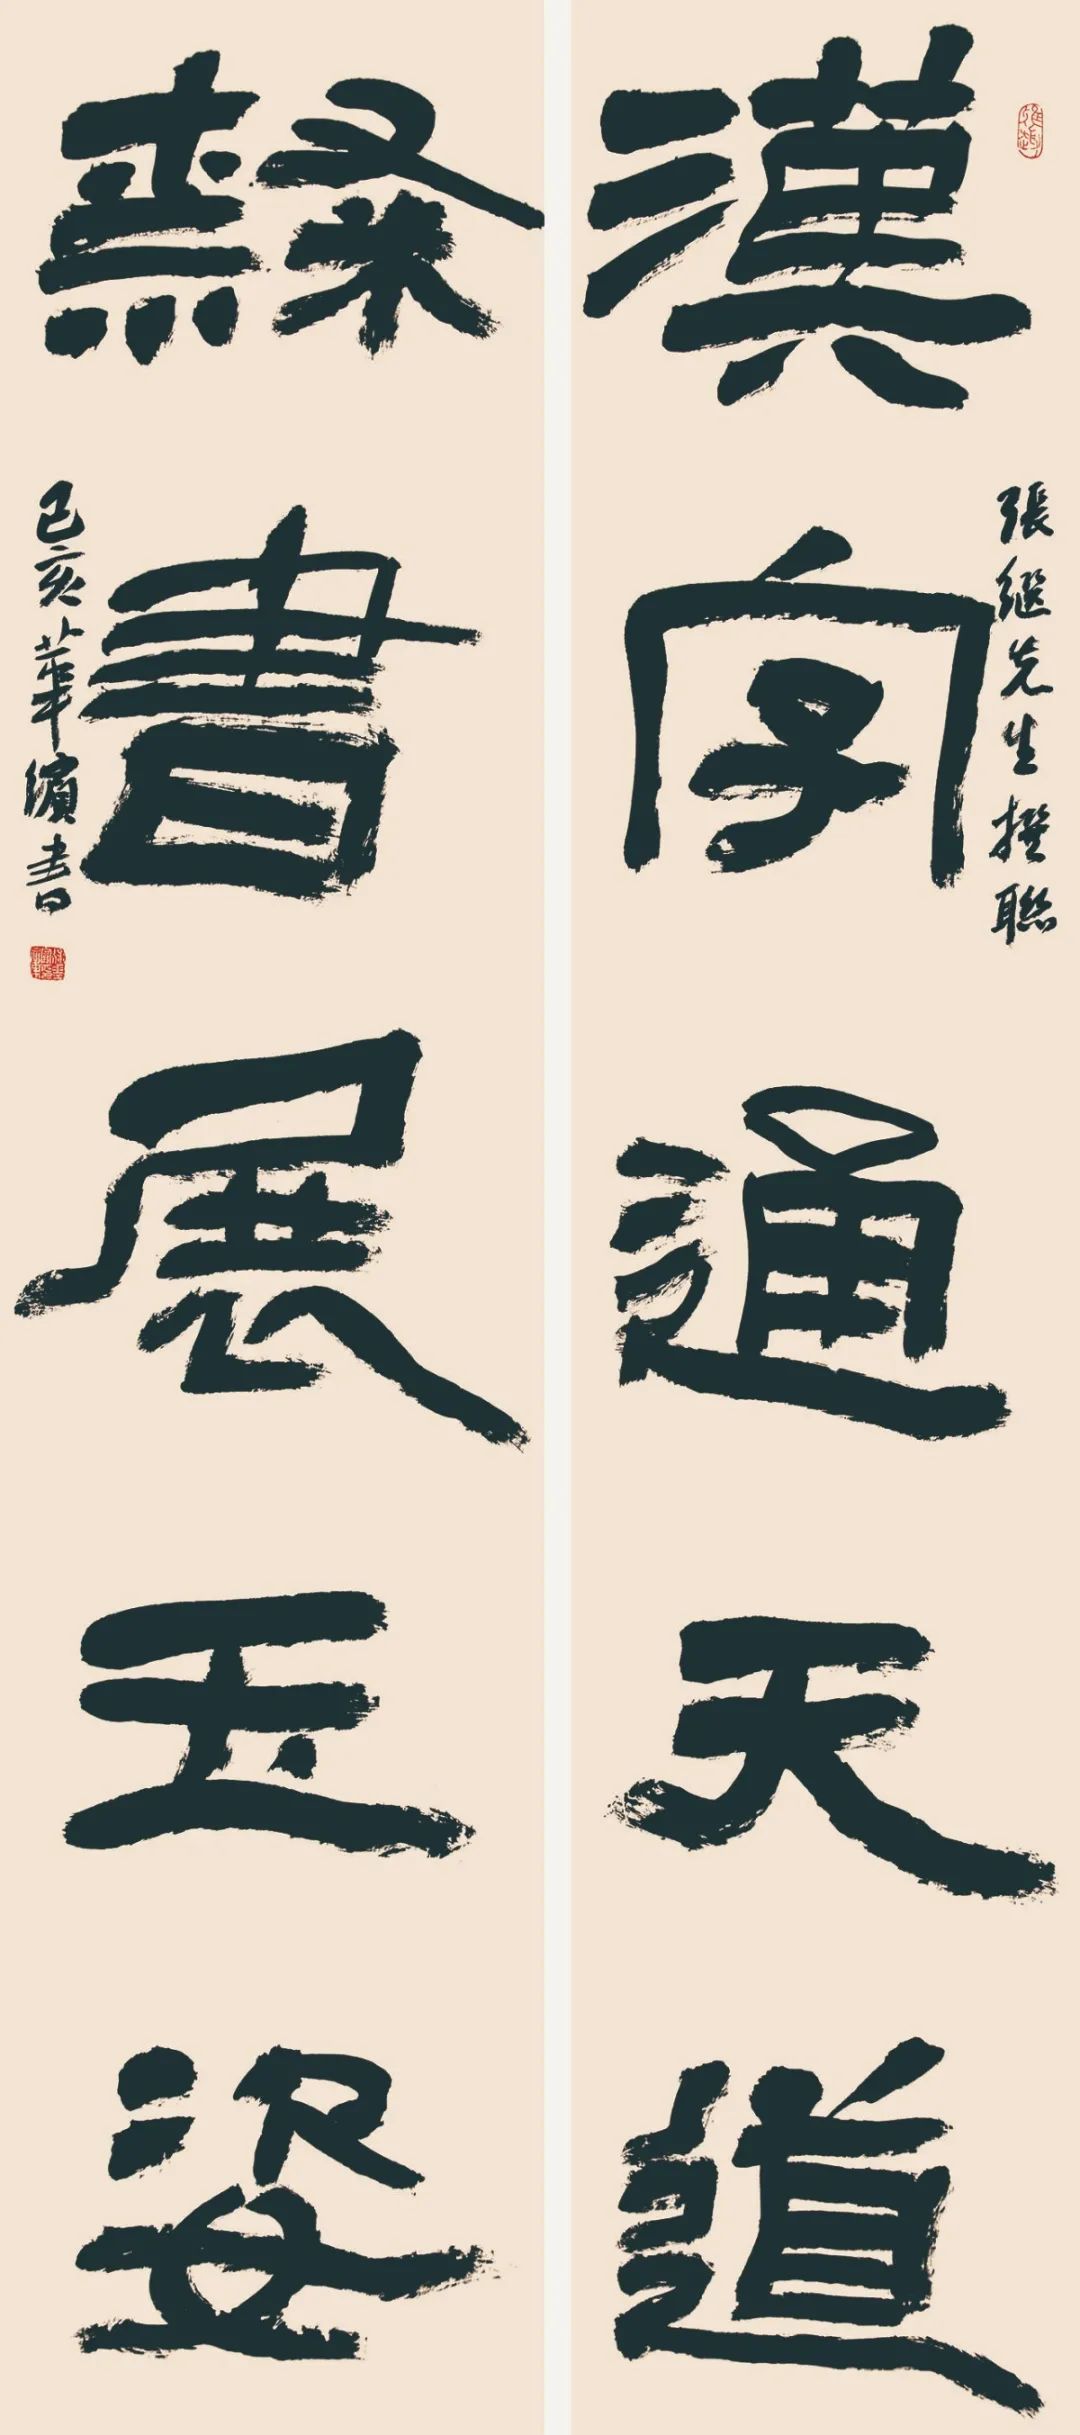 漢字通天道
張継先生撰聯
隸書展玉姿
己亥華繽書